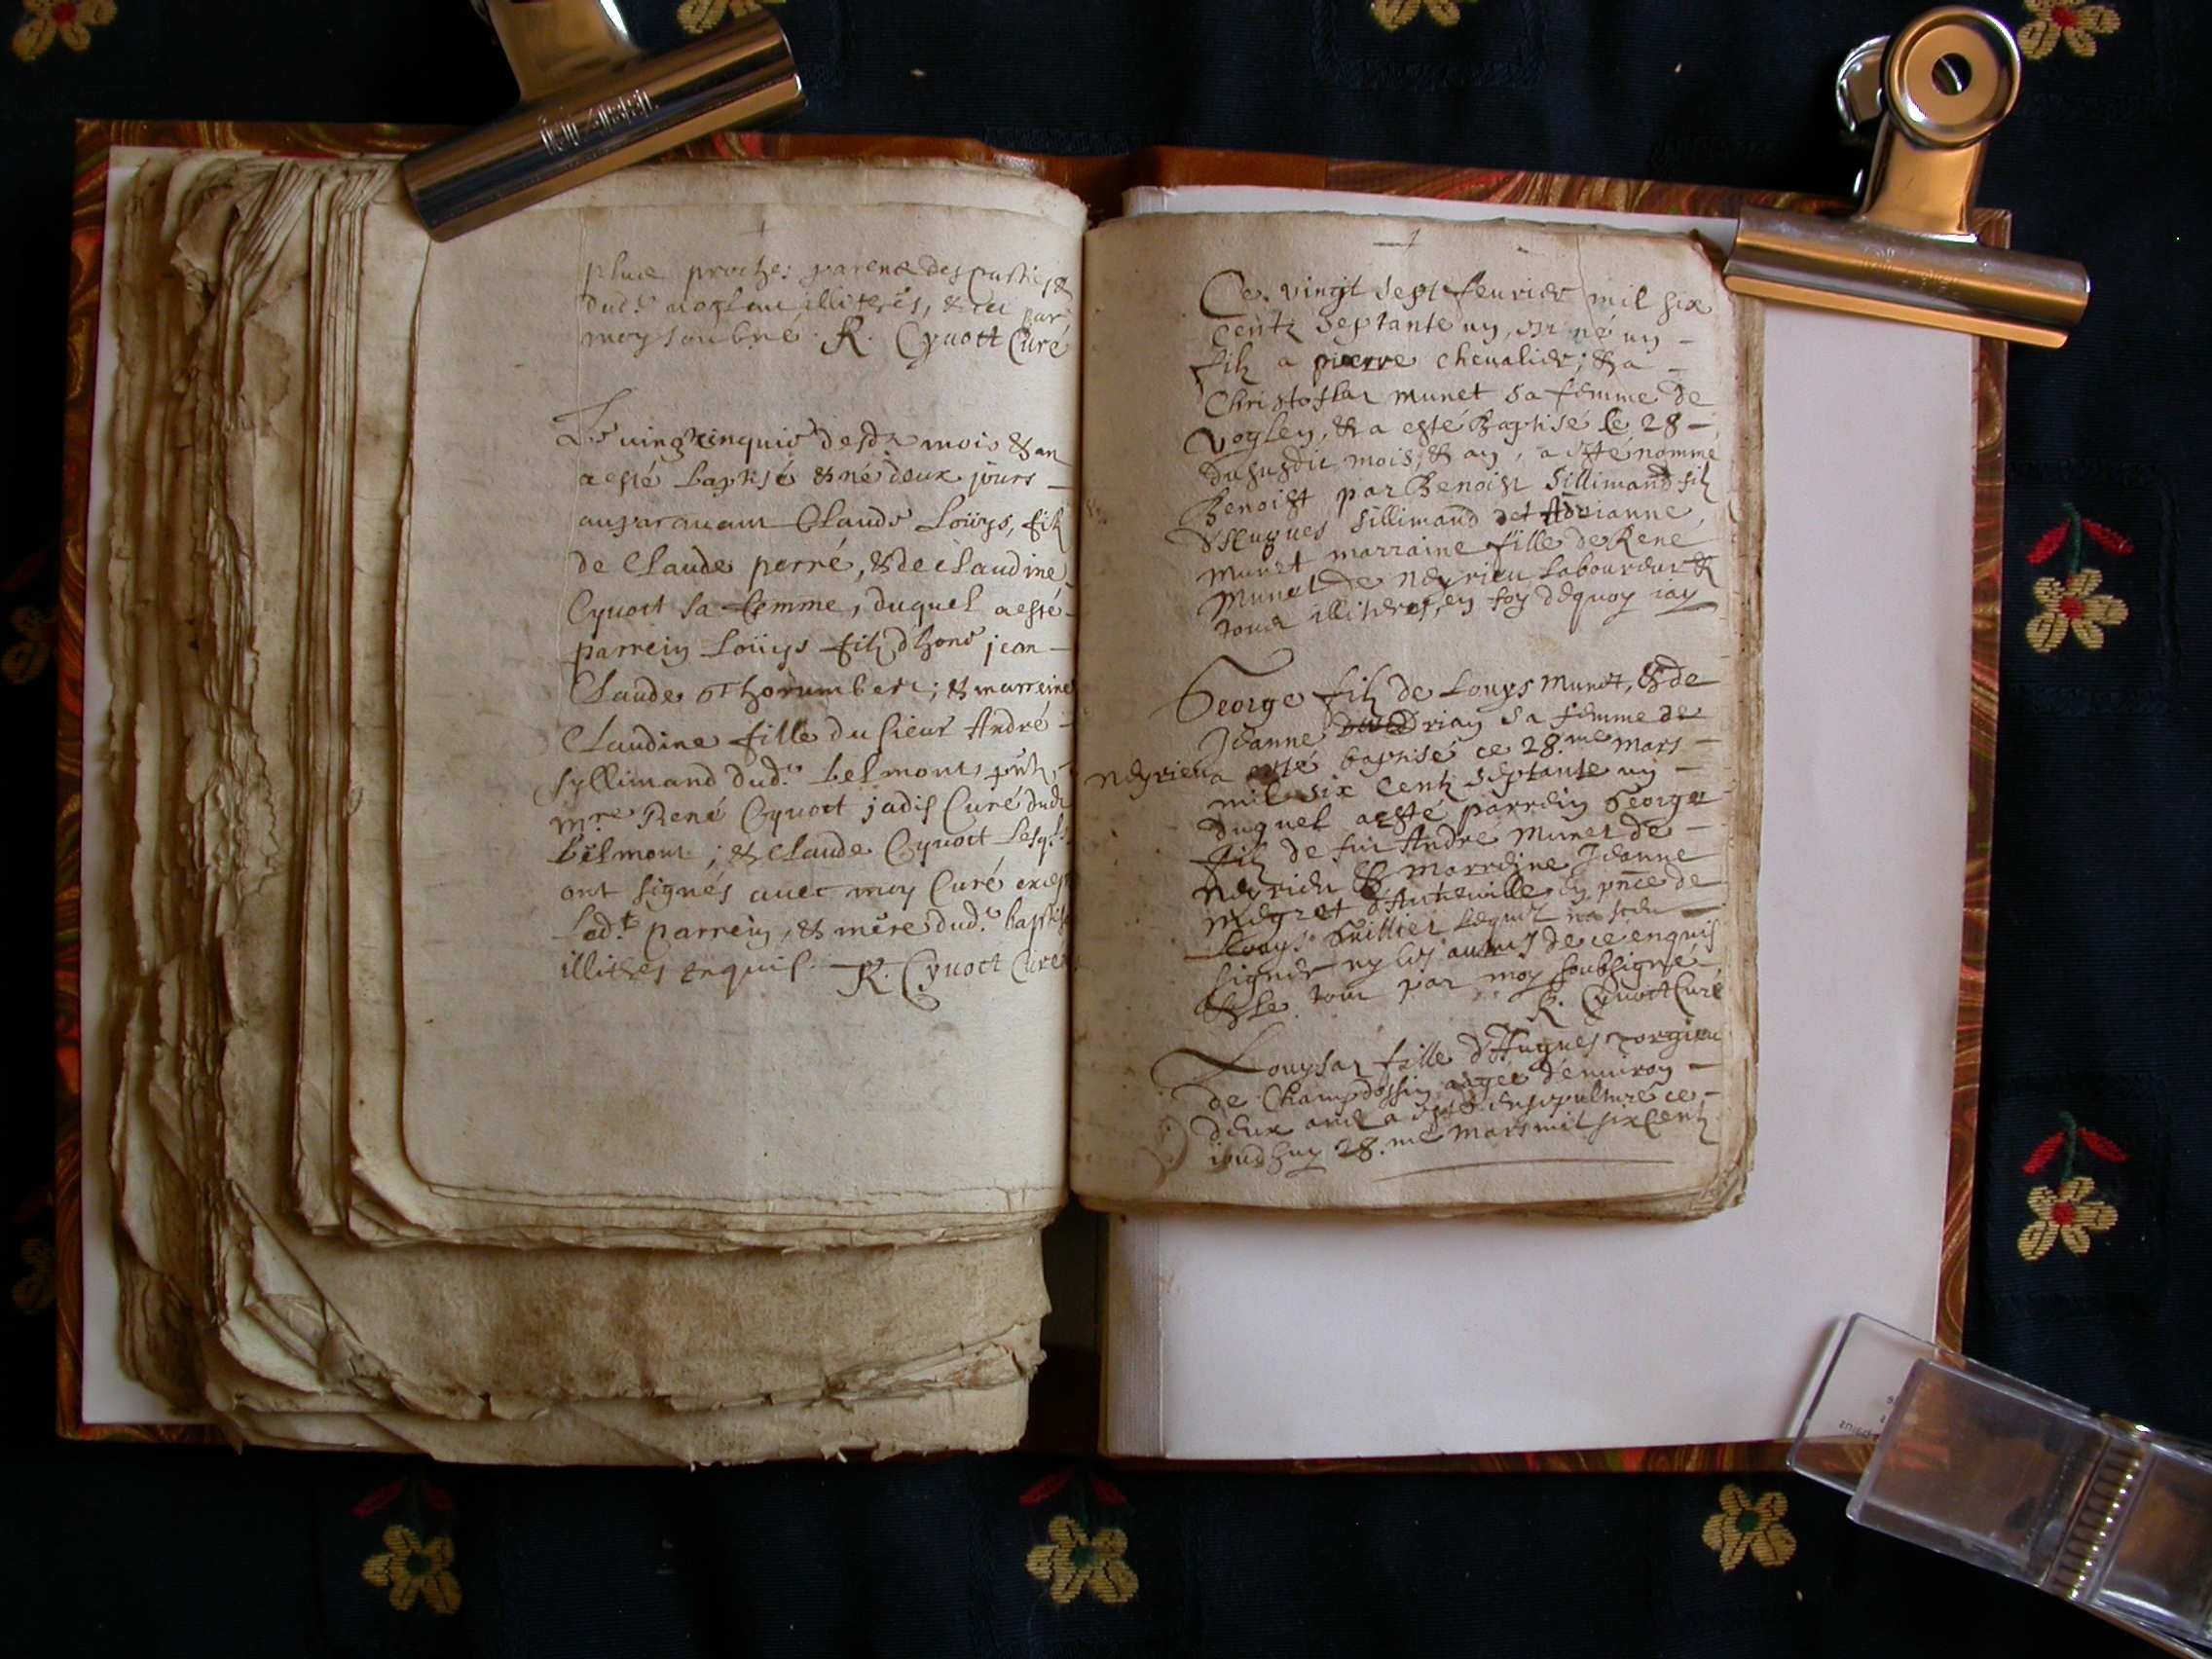 plus proches parens des parties &
dud.t voglen illiterés, & ce par
moy soubné. R. Cyvoct Curé
Le vingt cinquie desd. mois & an
a esté baptisé & né deux jours
auparavant Claude Loüys, filz
de Claude perré, & de claudine
Cyvoct sa femme, duquel a esté
parrein Loüys filz d'hon.e jean
Claude Thorumbert; & marreine
Claudine fille du sieur André
Syllimand dud.t belmont, pnts,
m.re René Cyvoct jadis Curé dud.
bélmont; & Claude Cyvoct lesq.ls
ont signés avec moy Curé except
led.t parrein, & mére dud.t baptisé
illitres enquis. R. Cyvoct Curé
Ce vingt sept fevrier mil six
centz septante un, est né un
filz a pierre chevalier; & a
Christofla munet sa femme de
voglen, & a esté Baptisé le 28
du susdit mois, & an, a esté nommé
Benoist par Benoist Sillimand filz
d'Hugues Sillimand et Adrianne
munet marraine fille de Rene
munet de neyrieu laboureur &
tous illiteres, en foy dequoy iay
George filz de Louys munet, & de
Jeanne Drian sa femme de
neyrieu a esté baptisé ce 28.me mars
mil six centz septante un
duquel a esté parrein George
filz de fut André munet de
neyrieu & marreine Jeanne
megret d'Anteville en pnce de
Louys Guillet lequel na sceu
signer ny les autres de ce enquis
& le tout par moy soubsigné
R. Cyvoct Curé
Louysaz fille d'Hugues vorgieu
de Champdossin aagee denviron
deux ans a esté ensepulturé ce
iourdhuy 28.me mars mil six centz